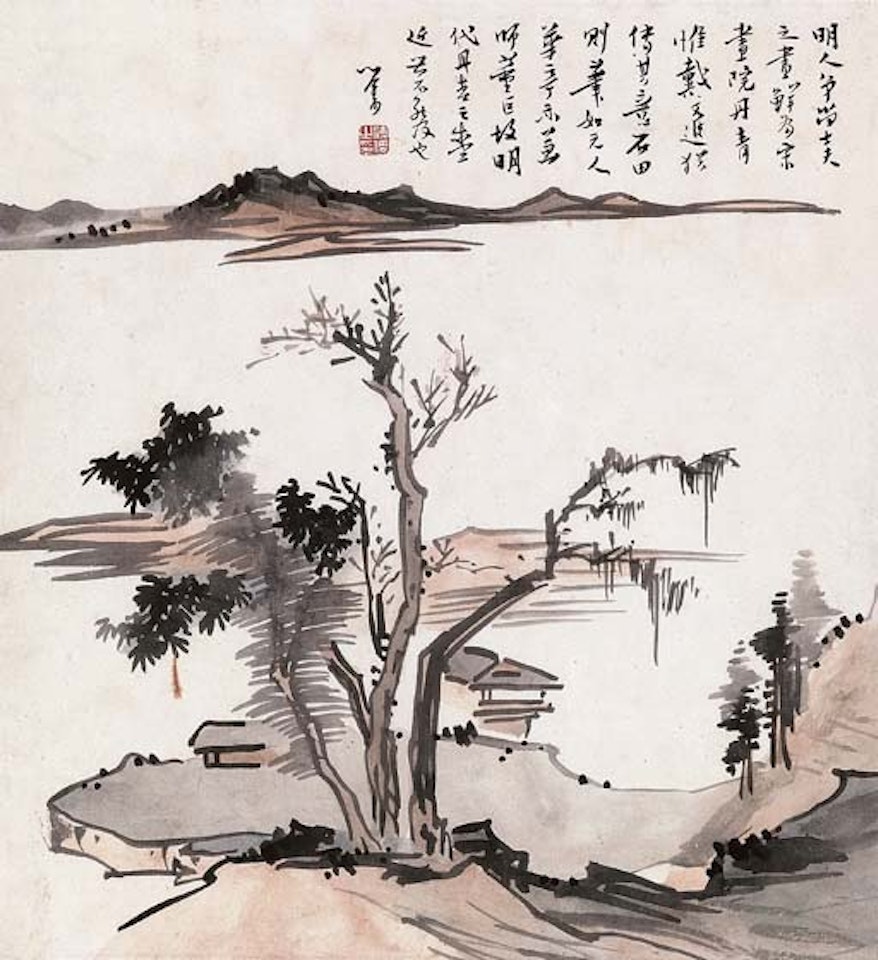 明人爭尚士夫
之畫鮮為宋
畫院丹青
惟戴文進猶
傳其意石田
則筆如元人
華亭亦兼
師董巨故明
代丹青之盛
近世不能及也
心畬